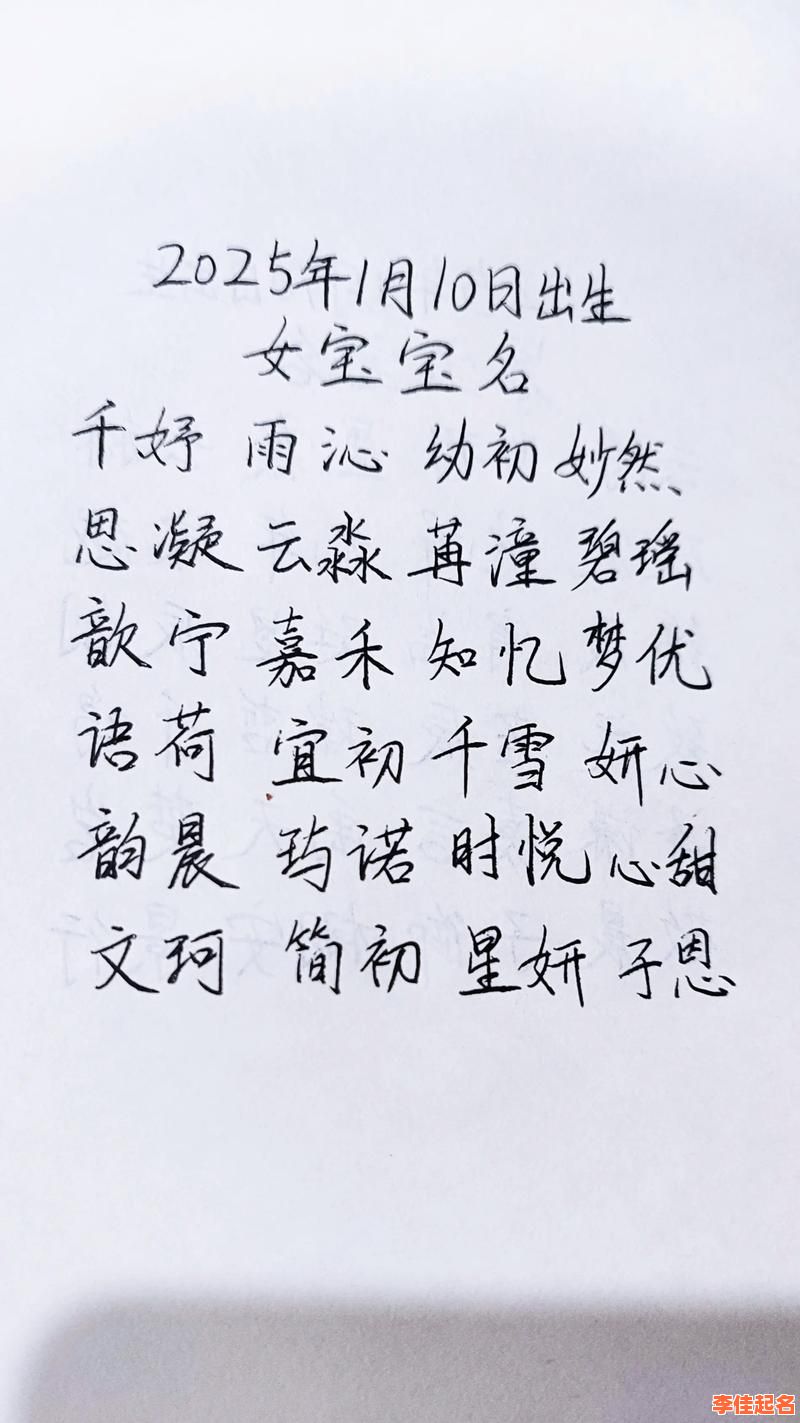 2025年1月10日出生
女宝宝名
千妤 雨沁 幼初 妙然
思凝 云淼 苒潼 碧瑶
歆宁 嘉禾 知忆 梦优
语荷 宜初 千雪 妍心
韵晨 玙诺 时悦 心甜
文珂 简初 星妍 予恩
李佳起名